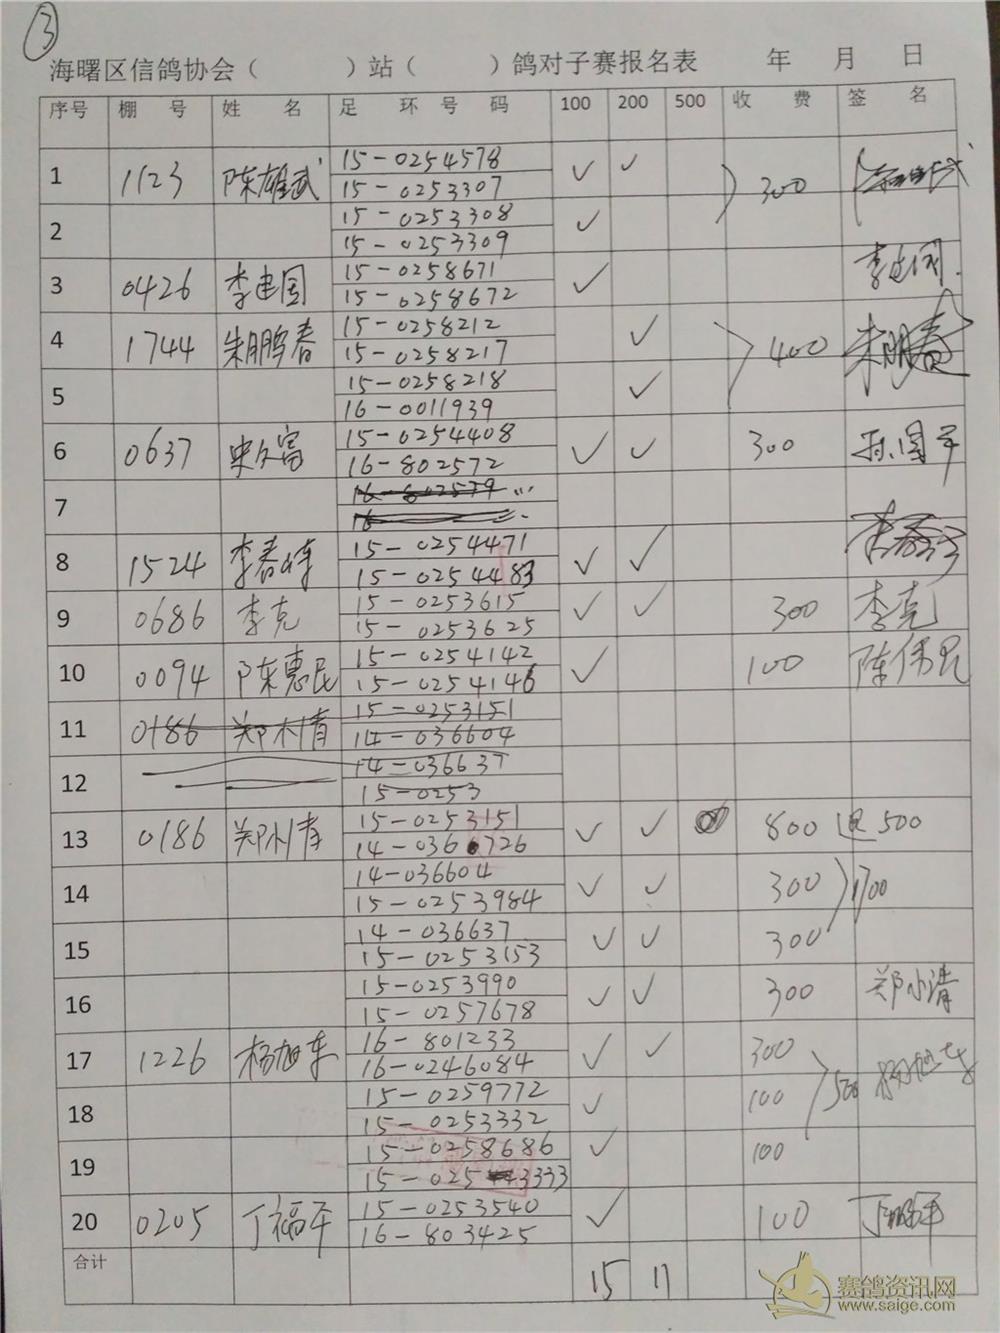 3
海曙区信鸽协会（ ）站（ ）鸽对子赛报名表 年 月 日
序号 棚号 姓名 足环号码 100 200 500 收费 签名
1 1123 陈雄武 15-0254578 ✓ ✓ 300
15-0253307
2 15-0253308 ✓
15-0253309
3 0426 李建国 15-0258671 ✓ 李建国
15-0258672
4 1744 朱鹏春 15-0258212 ✓ 400 朱鹏春
15-0258217
5 15-0258218 ✓
16-0011939
6 0637 15-0254408 ✓ ✓ 300 孙国平
16-802572
7 16-802579
16
8 1524 李春峰 15-0254471 ✓ ✓
15-0254483
9 0686 李克 15-0253615 ✓ ✓ 300 李克
15-0253625
10 0094 陈惠民 15-0254142 ✓ 100 陈伟民
15-0254146
11 0186 郑小清 15-0253151
14-036604
12 14-036637
15-0253
13 0186 郑小清 15-0253151 ✓ ✓ 800 退500
14-036 726
14 14-036604 ✓ ✓ 300 1700
15-0253984
15 14-036637 ✓ ✓ 300
15-0253153
16 15-0253990 ✓ ✓ 300 郑小清
15-0257678
17 1226 杨旭东 16-801233 ✓ ✓ 300 500 杨旭东
16-0246084
18 15-0259772 ✓ 100
15-0253332
19 15-0258686 ✓ 100
15-025 3333
20 0205 丁福平 15-0253540 ✓ 100
16-803425
合计 15 11
赛鸽资讯网
www.saige.com